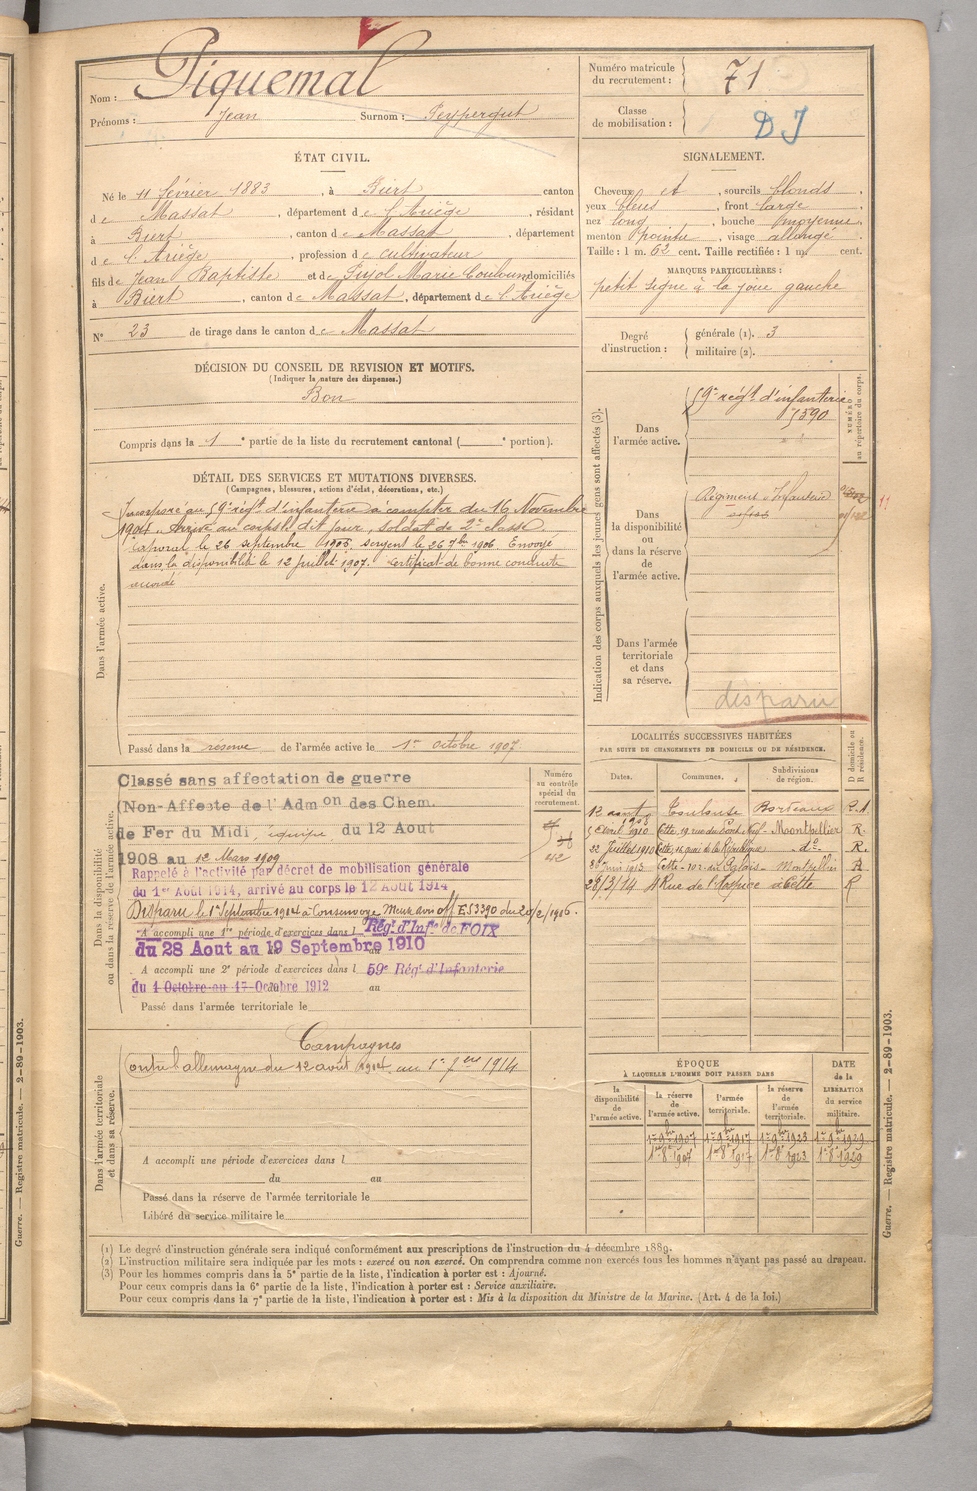 Nom : Piquemal
Prénoms : Jean Surnom : Peypergut
Numéro matricule
du recrutement : 71
Classe
de mobilisation :
D J
ÉTAT CIVIL.
Né le 11 février 1883, à Biert canton
de Massat, département de l'Ariège, résidant
à Biert, canton de Massat, département
de l'Ariège, profession de cultivateur
fils de Jean Baptiste et de Pujol Marie domiciliés
à Biert, canton de Massat, département de l'Ariège
N° 23 de tirage dans le canton de Massat
SIGNALEMENT.
Cheveux et, sourcils blonds,
yeux bleus, front large,
nez long, bouche moyenne,
menton pointu, visage allongé.
Taille : 1 m. 62 cent. Taille rectifiée : 1 m. cent.
MARQUES PARTICULIÈRES :
petit signe à la joue gauche
Degré
d'instruction :
générale (1). 3
militaire (2).
DÉCISION DU CONSEIL DE REVISION ET MOTIFS.
(Indiquer la nature des dispenses.)
Bon
Compris dans la 1e partie de la liste du recrutement cantonal ( e portion).
DÉTAIL DES SERVICES ET MUTATIONS DIVERSES.
(Campagnes, blessures, actions d'éclat, décorations, etc.)
Dans l'armée active.
Incorporé au 59e régt d'infanterie à compter du 16 Novembre
1904. Arrivé au corps le dit jour, soldat de 2e classe.
Caporal le 26 septembre 1905, sergent le 26 7bre 1906. Envoyé
dans la disponibilité le 12 juillet 1907. Certificat de bonne conduite
accordé
Passé dans la réserve de l'armée active le 1er octobre 1907.
Indication des corps auxquels les jeunes gens sont affectés (3).
NUMÉRO
au répertoire du corps.
Dans
l'armée active.
59e régt d'infanterie
5390
Dans
la disponibilité
ou
dans la réserve
de
l'armée active.
Régiment Infanterie
Dans l'armée
territoriale
et dans
sa réserve.
disparu
Dans la disponibilité
ou dans la réserve de l'armée active.
Classé sans affectation de guerre
(Non-Affecte de l'Admon des Chem.
de Fer du Midi, équipe du 12 Aout
1908 au 12 Mars 1909
Rappelé à l'activité par décret de mobilisation générale
du 1er Août 1914, arrivé au corps le 12 AOUT 1914
Disparu le 1er Septembre 1914 à Consenvoye Meuse avis off ES3390 du 20/2/1916.
A accompli une 1re période d'exercices dans l Régt d'Infie de FOIX
du 28 Aout au 19 Septembre 1910
A accompli une 2e période d'exercices dans l 59e Régt d'Infanterie
du 1 Octobre au 17 Octobre 1912 au
Passé dans l'armée territoriale le
Numéro
au contrôle
spécial du
recrutement.
LOCALITÉS SUCCESSIVES HABITÉES
PAR SUITE DE CHANGEMENTS DE DOMICILE OU DE RÉSIDENCE.
Dates. Communes. Subdivisions
de région.
D domicile ou
R résidence.
12 août 1908 Toulouse Bordeaux
5 Avril 1910 Cette, 19 rue du Pont Neuf Montpellier R.
22 Juillet 1910 Cette, 14 quai de la République do R.
1913 Cette Montpellier R
28/3/14 4 Rue de l'Hospice à Cette R
Dans l'armée territoriale
et dans sa réserve.
Campagnes
Contre l'allemagne du 12 août 1914 au 1er 7bre 1914
A accompli une période d'exercices dans l
du au
Passé dans la réserve de l'armée territoriale le
Libéré du service militaire le
ÉPOQUE
À LAQUELLE L'HOMME DOIT PASSER DANS
DATE
de la
LIBÉRATION
du service
militaire.
la
disponibilité
de
l'armée active.
la réserve
de
l'armée active.
l'armée
territoriale.
la réserve
de
l'armée
territoriale.
1er 9bre 1907 1er 9bre 1917 1er 9bre 1923 1er 9bre 1929
1er 8bre 1907 1er 8bre 1917 1er 8bre 1923 1er 8bre 1929
(1) Le degré d'instruction générale sera indiqué conformément aux prescriptions de l'instruction du 4 décembre 1889.
(2) L'instruction militaire sera indiquée par les mots : exercé ou non exercé. On comprendra comme non exercés tous les hommes n'ayant pas passé au drapeau.
(3) Pour les hommes compris dans la 5e partie de la liste, l'indication à porter est : Ajourné.
Pour ceux compris dans la 6e partie de la liste, l'indication à porter est : Service auxiliaire.
Pour ceux compris dans la 7e partie de la liste, l'indication à porter est : Mis à la disposition du Ministre de la Marine. (Art. 4 de la loi.)
Guerre. — Registre matricule. — 2-89-1903.
Guerre. — Registre matricule. — 2-89-1903.